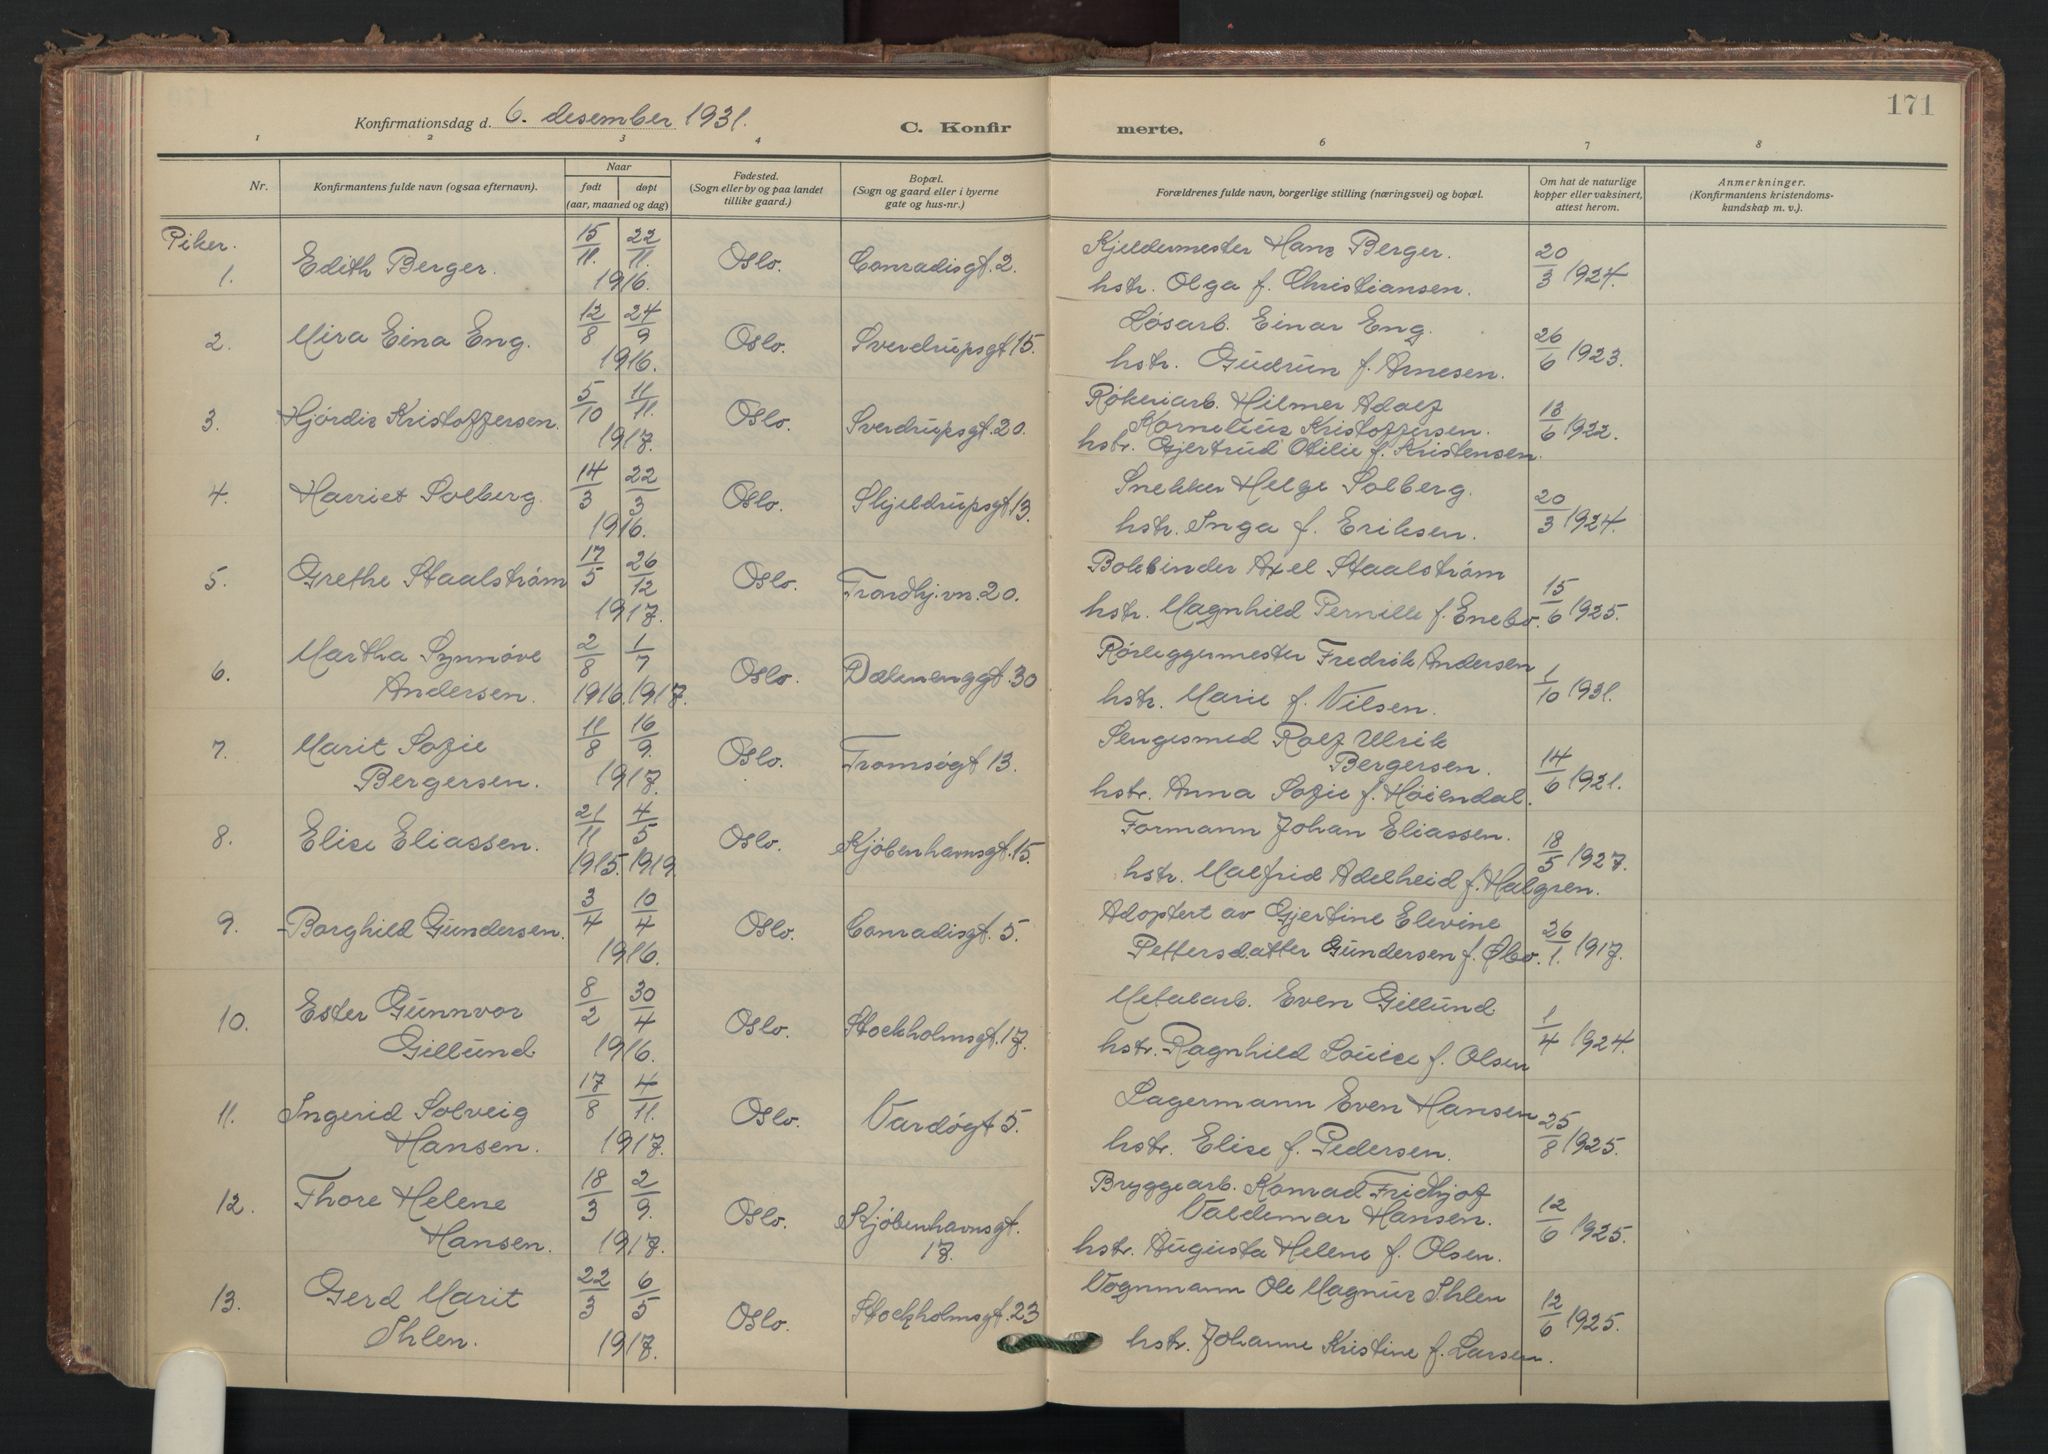 171
Konfirmationsdag d. 6. desember 1931.
C. Konfir merte.
1 2 3 4 5 6 7 8
Nr.
Konfirmantens fulde navn (ogsaa efternavn).
Naar
født døpt
(aar, maaned og dag)
Fødested.
(Sogn eller by og paa landet
tillike gaard.)
Bopæl.
(Sogn og gaard eller i byerne
gate og hus-nr.)
Forældrenes fulde navn, borgerlige stilling (næringsvei) og bopæl.
Om hat de naturlige
kopper eller vaksinert,
attest herom.
Anmerkninger.
(Konfirmantens kristendoms-
kundskap m. v.).
Piker.
1. Edith Berger. 15/11. 22/11. 1916. Oslo. Conradisgt. 2. Kjeldermester Hans Berger. 20/3 1924.
hstr. Olga f. Christiansen.
2. Mira Eina Eng. 12/8 24/9 1916. Oslo. Sverdrupsgt 15. Løsarb. Einar Eng. 26/6 1923.
hstr. Gudrun f. Arnesen.
3. Hjørdis Kristoffersen. 5/10 11/11. 1917. Oslo. Sverdrupsgt. 20. Røkeriarb. Hilmer Adolf 13/6 1922.
Kornelius Kristoffersen.
hstr. Gjertrud Otilie f. Kristensen.
4. Harriet Solberg. 14/3 22/3 1916. Oslo. Skjeldrupsgt 13. Snekker Helge Solberg. 20/3 1924.
hstr. Inga f. Eriksen.
5. Grethe Staalstrøm 17/5 26/12 1917. Oslo. Trondhj. vn. 20. Bokbinder Axel Staalstrøm 15/6 1925.
hstr. Magnhild Pernille f. Enebo.
6. Martha Synnøve 2/8 1916. 1/7 1917. Oslo. Dælenenggt. 30 Rørleggermester Fredrik Andersen 1/10 1931.
Andersen. hstr. Marie f. Nilsen.
7. Marit Sofie 11/8 16/9. 1917. Oslo. Tromsøgt 13. Sengesmed Rolf Ulrik 14/6 1921.
Bergersen. Bergersen.
hstr. Anna Sofie f. Høiendal.
8. Elise Eliassen. 21/11 1915. 4/5 1919. Oslo. Kjøbenhavnsgt. 15. Formann Johan Eliassen. 18/5 1927.
hstr. Malfrid Adelheid f. Halgren.
9. Borghild Gundersen. 3/4 10/4 1916. Oslo. Conradisgt. 5. Adoptert av Gjertine Elevine 26/1. 1917.
Pettersdatter Gundersen f. Øbo.
10. Ester Gunnvor 8/2 30/4 1916. Oslo. Stockholmsgt. 17. Metalarb. Even Gillund 1/4 1924.
Gillund hstr. Ragnhild Louise f. Olsen
11. Ingerid Solveig 17/8 4/11. 1917. Oslo. Vardøgt 5. Lagermann Even Hansen 25/8 1925.
Hansen. hstr. Elise f. Pedersen.
12. Thore Helene 18/3 2/9. 1917. Oslo. Kjøbenhavnsgt. 17. Bryggearb. Konrad Fridhjof 12/6 1925.
Hansen. Valdemar Hansen.
hstr. Augusta Helene f. Olsen.
13. Gerd Marit 22/3 6/5 1917. Oslo. Stockholmsgt. 23 Vognmann Ole Magnus Ihlen 12/6 1925.
Ihlen. hstr. Johanne Kristine f. Larsen.